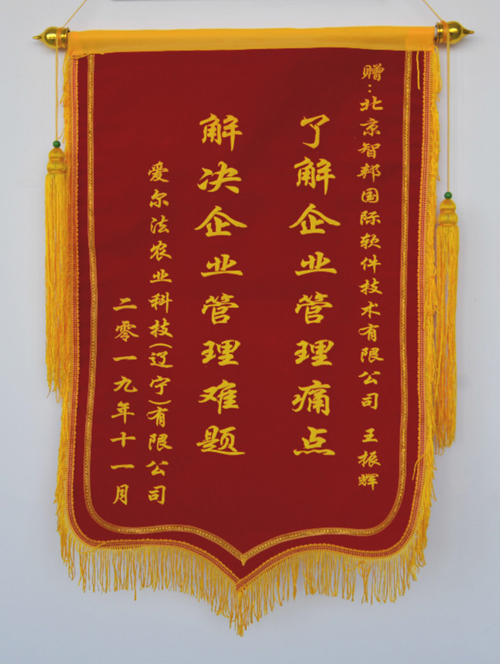 赠:北京智邦国际软件技术有限公司 王振辉
了解企业管理痛点
解决企业管理难题
爱尔法农业科技(辽宁)有限公司
二零一九年十一月